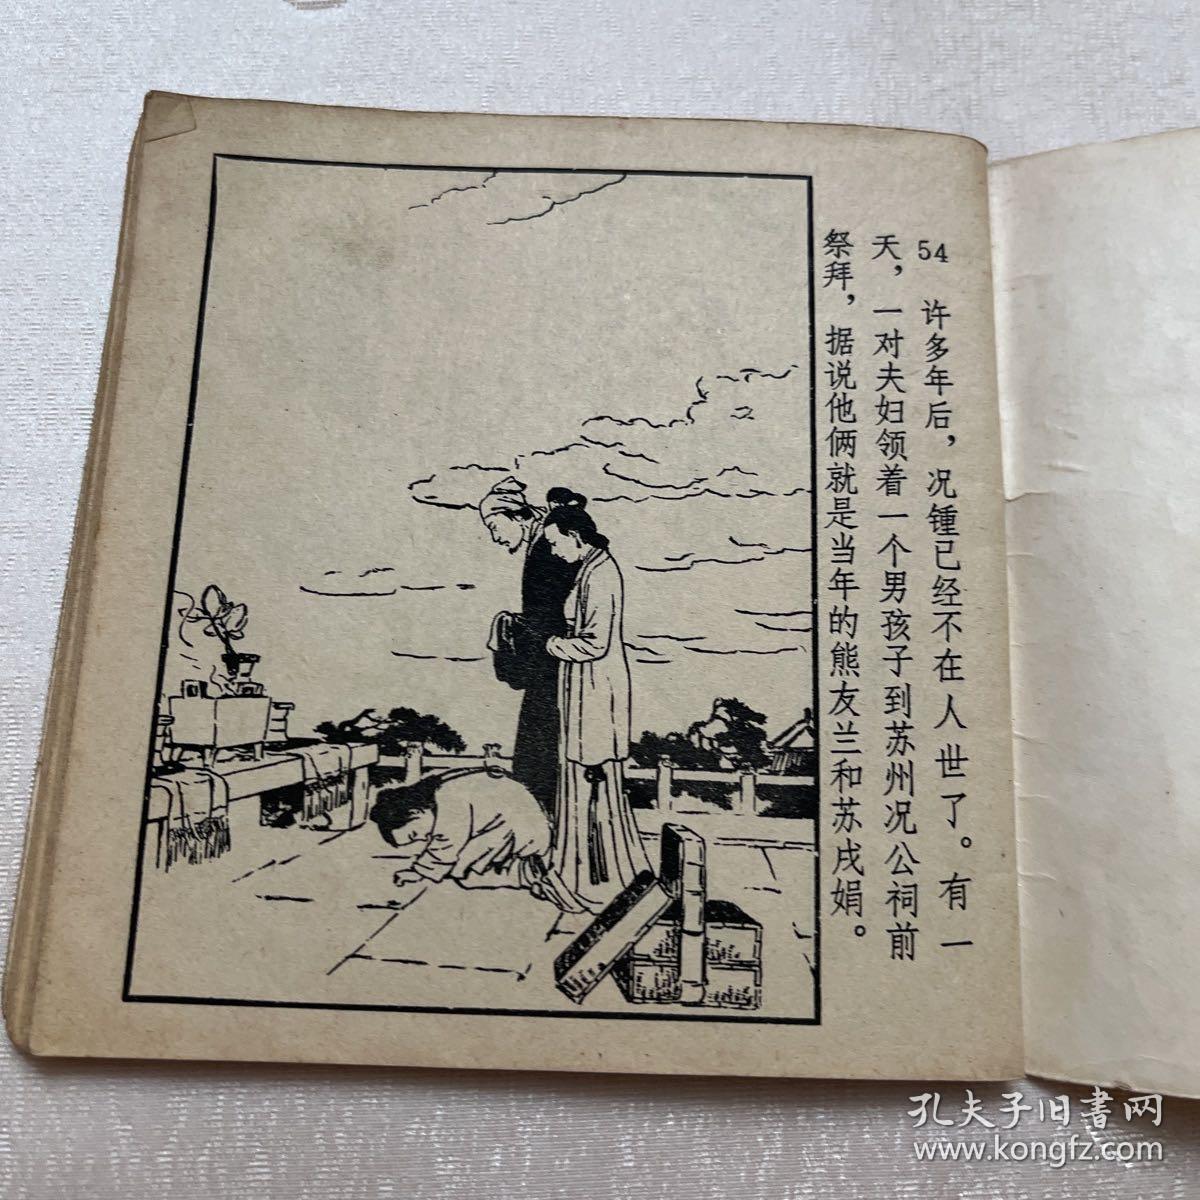 54　许多年后，况锺已经不在人世了。有一
天，一对夫妇领着一个男孩子到苏州况公祠前
祭拜，据说他俩就是当年的熊友兰和苏戌娟。
孔夫子旧書网
www.kongfz.com